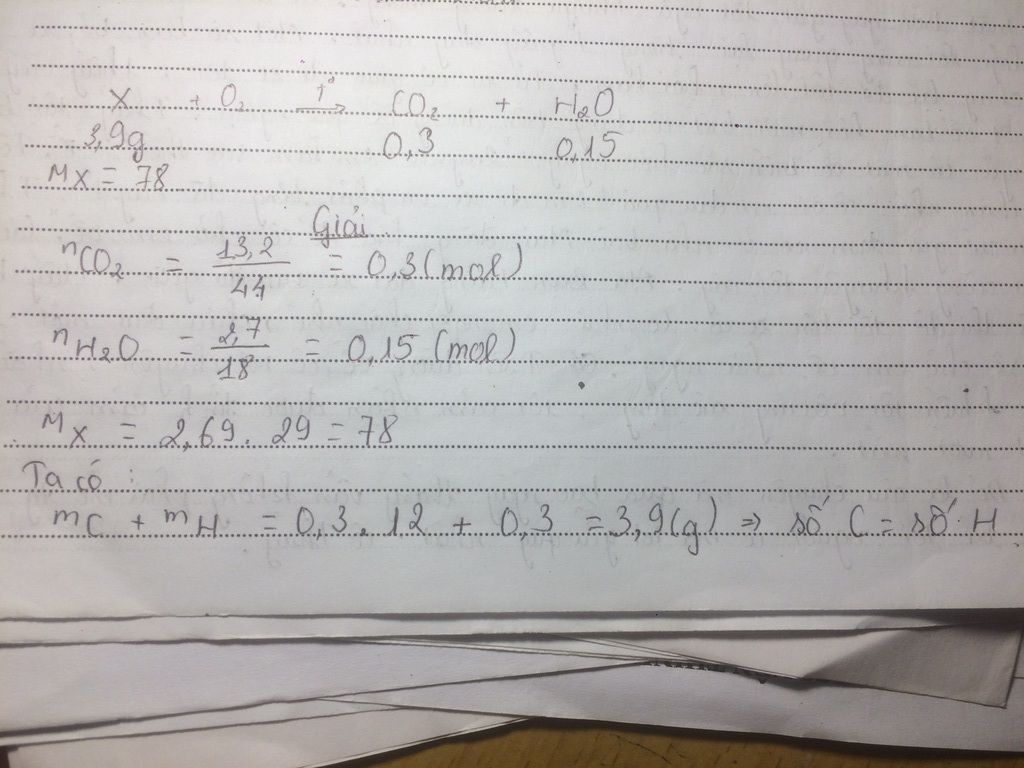 X + O₂ t° → CO₂ + H₂O
3,9g 0,3 0,15
Mx = 78
Giải
nCO₂ = 13,2/44 = 0,3 (mol)
nH₂O = 2,7/18 = 0,15 (mol)
Mx = 2,69 . 29 = 78
Ta có :
mC + mH = 0,3 . 12 + 0,3 = 3,9(g) ⇒ số C = số H